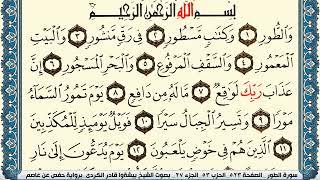 بِسْمِ اللَّهِ الرَّحْمَٰنِ الرَّحِيمِ
وَالطُّورِ ١ وَكِتَابٍ مَّسْطُورٍ ٢ فِي رَقٍّ مَّنشُورٍ ٣ وَالْبَيْتِ
الْمَعْمُورِ ٤ وَالسَّقْفِ الْمَرْفُوعِ ٥ وَالْبَحْرِ الْمَسْجُورِ ٦ إِنَّ
عَذَابَ رَبِّكَ لَوَاقِعٌ ٧ مَّا لَهُ مِن دَافِعٍ ٨ يَوْمَ تَمُورُ السَّمَاءُ
مَوْرًا ٩ وَتَسِيرُ الْجِبَالُ سَيْرًا ١٠ فَوَيْلٌ يَوْمَئِذٍ لِّلْمُكَذِّبِينَ
١١ الَّذِينَ هُمْ فِي خَوْضٍ يَلْعَبُونَ ١٢ يَوْمَ يُدَعُّونَ إِلَىٰ نَارِ
سورة الطور الصفحة ٥٢٣ الحزب ٥٣ الجزء ٢٧ بصوت الشيخ بيشةوا قادر الكردي برواية حفص عن عاصم